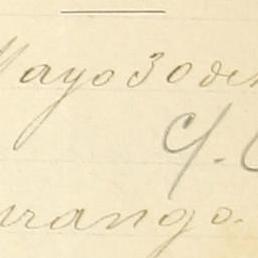 Mayo 30 de
urango.